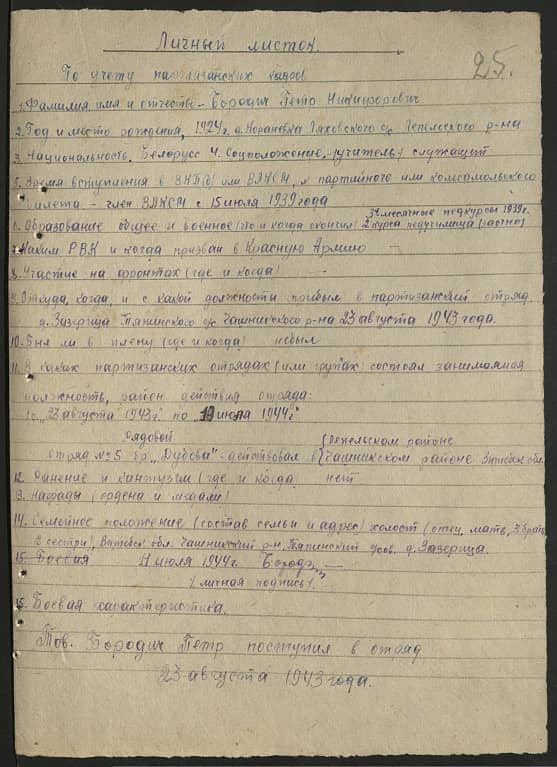 Личный листок
25.
По учету партизанских кадров
1. Фамилия имя и отчество - Бородич Петр Никифорович
2. Год и место рождения, 1924 г. д. Нораневка Гяховского с/с Лепельского р-на
3. Национальность. Белорусс 4. Соцположение, - учитель, служащий
5. Время вступления в ВКП(б) или ВЛКСМ, № партийного или комсомольского
билета - член ВЛКСМ с 15 июля 1939 года
3х месячные педкурсы 1939г.
6. Образование общее и военное (что и когда окончил) 2 курса педучилища (заочно)
7. Каким РВК и когда призван в Красную Армию —
8. Участие на фронтах (где и когда) —
9. Откуда, когда, и с какой должности прибыл в партизанский отряд
д. Зазерица Тяпинского с/с Чашникского р-на 23 августа 1943 года.
10. Был ли в плену (где и когда) небыл
11. В каких партизанских отрядах (или группах) состоял занимаемая
должность, район действия отряда:
1. с "23 августа" 1943г по июня 1944г
рядовой (Лепельском районе
отряд №5 бр. "Дубова" - действовал в (Чашникском районе Витебск обл.
12. Ранение и контузии (где и когда) нет
13. Награды (ордена и медали)
14. Семейное положение (состав семьи и адрес) холост (отец, мать, 3 брата
2 сестры), Витебск обл. Чашникский р-н, Тяпинский с/сов. д. Зазерица.
15. Боевая июля 1944г. Бородич —
(личная подпись).
15. Боевая характеристика.
Тов. Бородич Петр поступил в отряд
23 августа 1943 года.